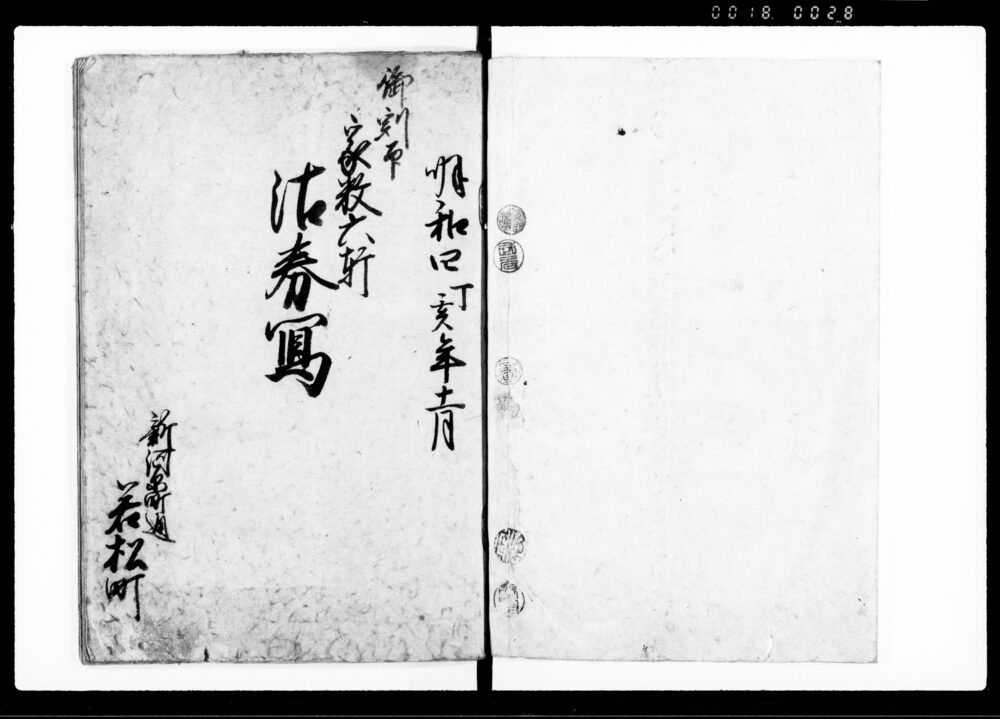 0018 0028
明和四丁亥年十一月
御割印
家数六軒
沽券写
新河岸町通
若松町